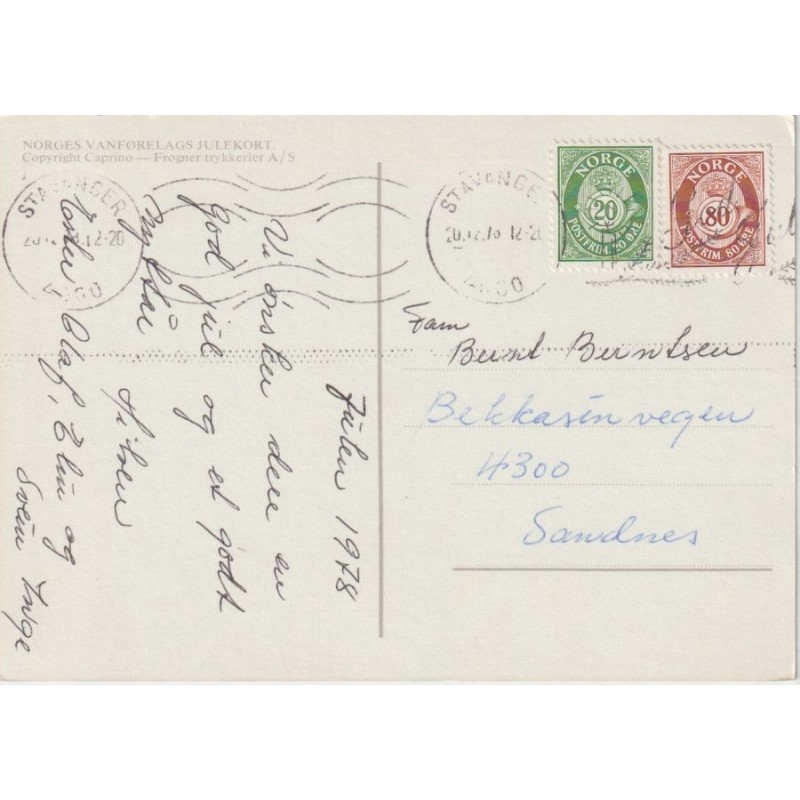 NORGES VANFØRELAGS JULEKORT.
Copyright Caprino — Frogner trykkerier A/S
STAVANGER
12-20
Julen 1978
Vi ønsker dere en
god jul og et godt
nytt år.
Hilsen
Olaf, Elin og
Svein Inge
STAVANGE
20.12.78 12-20
NORGE
20
POSTFRIM. 20 ØRE
NORGE
80
POSTFRIM. 80 ØRE
Fam
Bernt Berntsen
Bekkasinvegen
4300
Sandnes